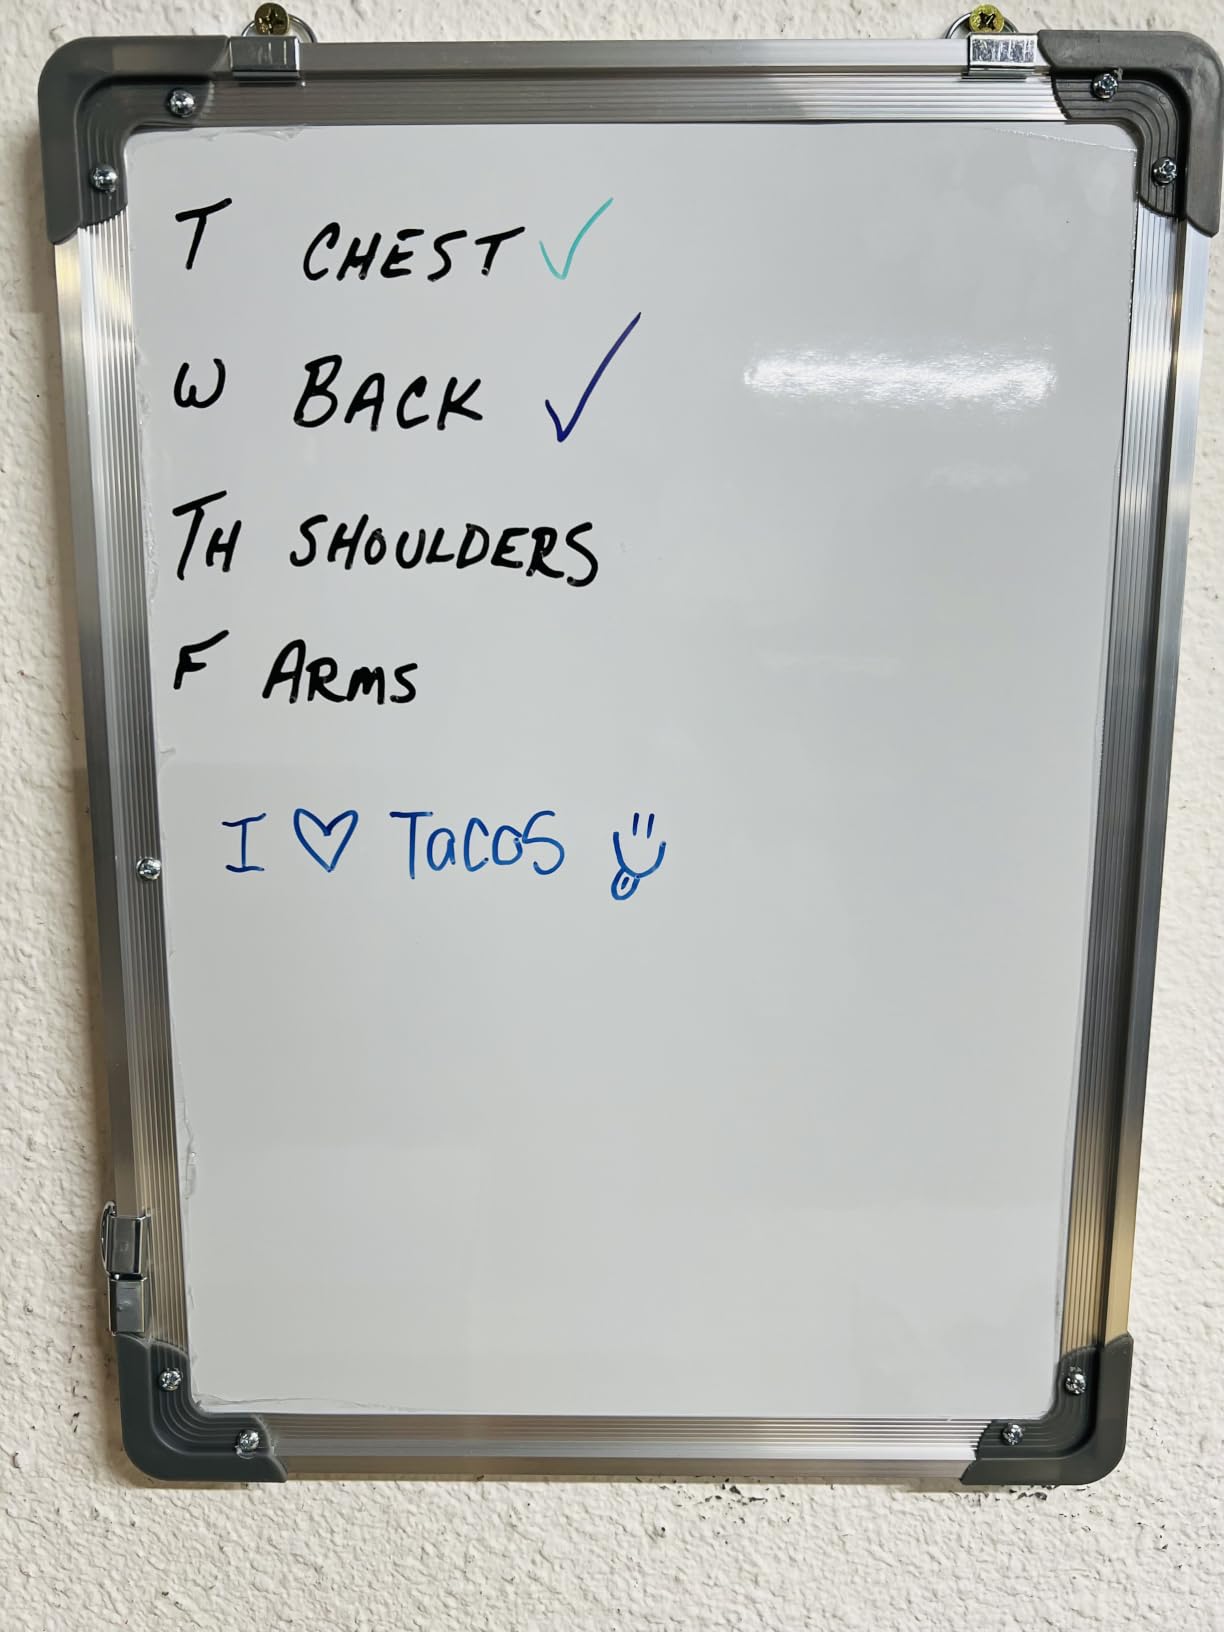 T CHEST ✓
W BACK ✓
TH SHOULDERS
F ARMS
I ♡ Tacos